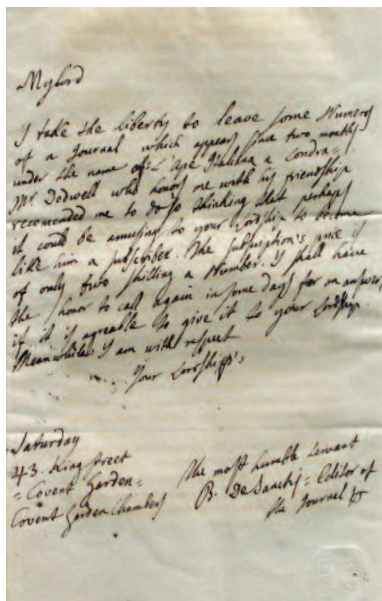 My lord
I take the liberty to leave some Numers
of a Journal which appears since two months
under the name of: L'Ape Italiana a Londra:
Mr. Dodwell who honors me with his friendship
recomended me to do so thinking that perhaps
it could be amusing to your Lordship to become
like him a subscriber. The subscription's price is
of only two shilling a Number. I shall have
the honor to call again in some days for an answer,
if it is agreable to give it to your Lordship.
Meanwhile I am with respect
Your Lordship's
Saturday
43. King Street
= Covent Garden =
Covent Garden Chambers
The most humble servant
B. De Sanctis = Editor of
the Journel